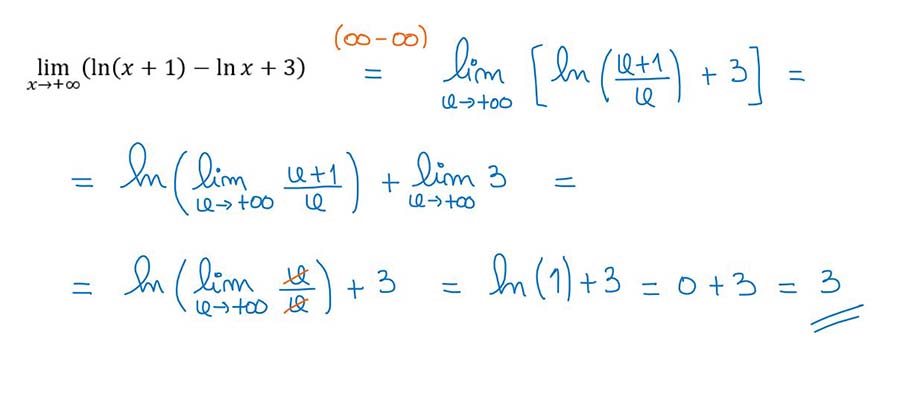 lim x→+∞ (ln(x + 1) − ln x + 3) (∞ − ∞) = lim x→+∞ [ln((x+1)/x) + 3] =
= ln(lim x→+∞ (x+1)/x) + lim x→+∞ 3 =
= ln(lim x→+∞ x/x) + 3 = ln(1) + 3 = 0 + 3 = 3